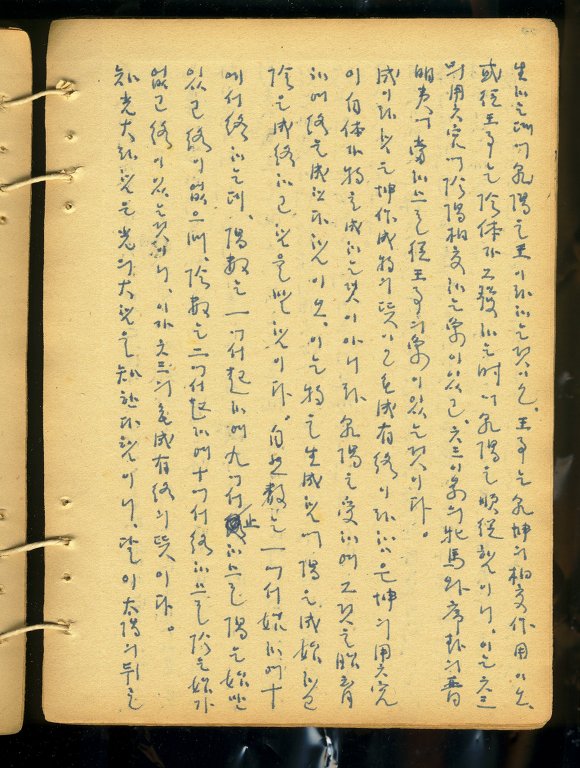 生하는데 乾陽을 王이라 하는 것이오, 王事는 乾坤의 相交作用이오,
或從王事는 陰体가 그 發하는 때에 乾陽을 順從함이니, 이는 六三
의 用六宮에 陰陽相交하는 象이 있고, 六三이 의 牝馬와 의 晋
明夷에 當하므로 從王事의 象이 있는 것이다。
成이라 함은 坤作成物의 뜻이고 无成有終이라 함은 坤의 用六宮
이 自体가 物을 成하는 것이 아니라 乾陽을 受하여 그것을 胎育
하여 終을 成한다 함이오, 이는 物을 生成함에 陽을 成始하고
陰을 成終하고 함을 함이다。自然數는 一에서 始하여 十
에서 終하는데, 陽數는 一에서 起하여 九에서 止하므로 陽은 始만
있고 終이 없으며, 陰數는 二에서 起하여 十에서 終하므로 陰은 始가
없고 終이 있는 것이니, 이가 六三의 无成有終의 뜻이다。
知光大라 함은 光의 大함을 知한다 함이니, 달이 太陽의 뒤를